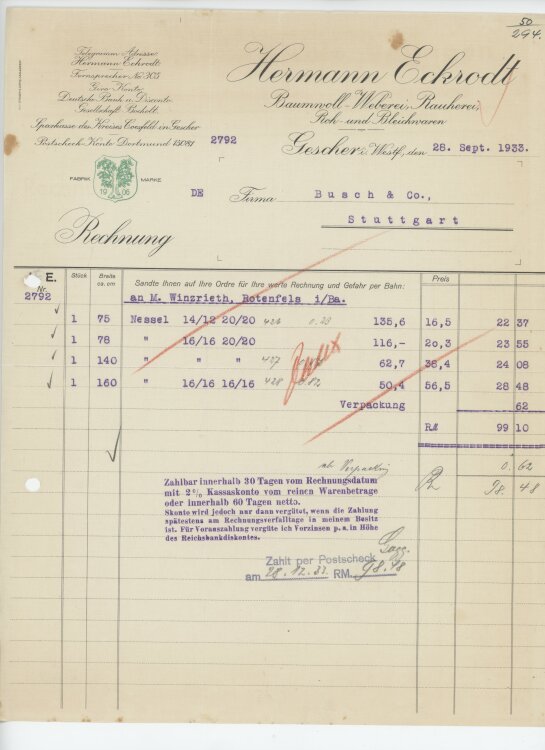 50
294.
Telegramm-Adresse:
Hermann Eckrodt
Fernsprecher No 305
Giro-Konto:
Deutsche Bank u. Disconto-
Gesellschaft Bocholt.
Sparkasse des Kreises Coesfeld in Gescher
Postscheck-Konto Dortmund 15081
Hermann Eckrodt
Baumwoll-Weberei, Rauherei,
Roh- und Bleichwaren
2792
Gescher i. Westf., den 28. Sept. 1933.
FABRIK MARKE
1906
DE Firma Busch & Co.,
Stuttgart
Rechnung
E. Stück Breite ca. cm Sandte Ihnen auf Ihre Ordre für Ihre werte Rechnung und Gefahr per Bahn: Preis
Nr.
2792 an M. Winzrieth, Rotenfels i/Ba.
1 75 Nessel 14/12 20/20 135,6 16,5 22 37
1 78 " 16/16 20/20 116,— 20,3 23 55
1 140 " " " 427 62,7 38,4 24 08
1 160 " 16/16 16/16 428 50,4 56,5 28 48
Verpackung 62
RM 99 10
ab Verpackung 0.62
98. 48
Zahlbar innerhalb 30 Tagen vom Rechnungsdatum
mit 2% Kassaskonto vom reinen Warenbetrage
oder innerhalb 60 Tagen netto.
Skonto wird jedoch nur dann vergütet, wenn die Zahlung
spätestens am Rechnungsverfalltage in meinem Besitz
ist. Für Vorauszahlung vergüte ich Vorzinsen p. a. in Höhe
des Reichsbankdiskontes.
Zahlt per Postscheck
am 28. 12. 33. RM 98.48